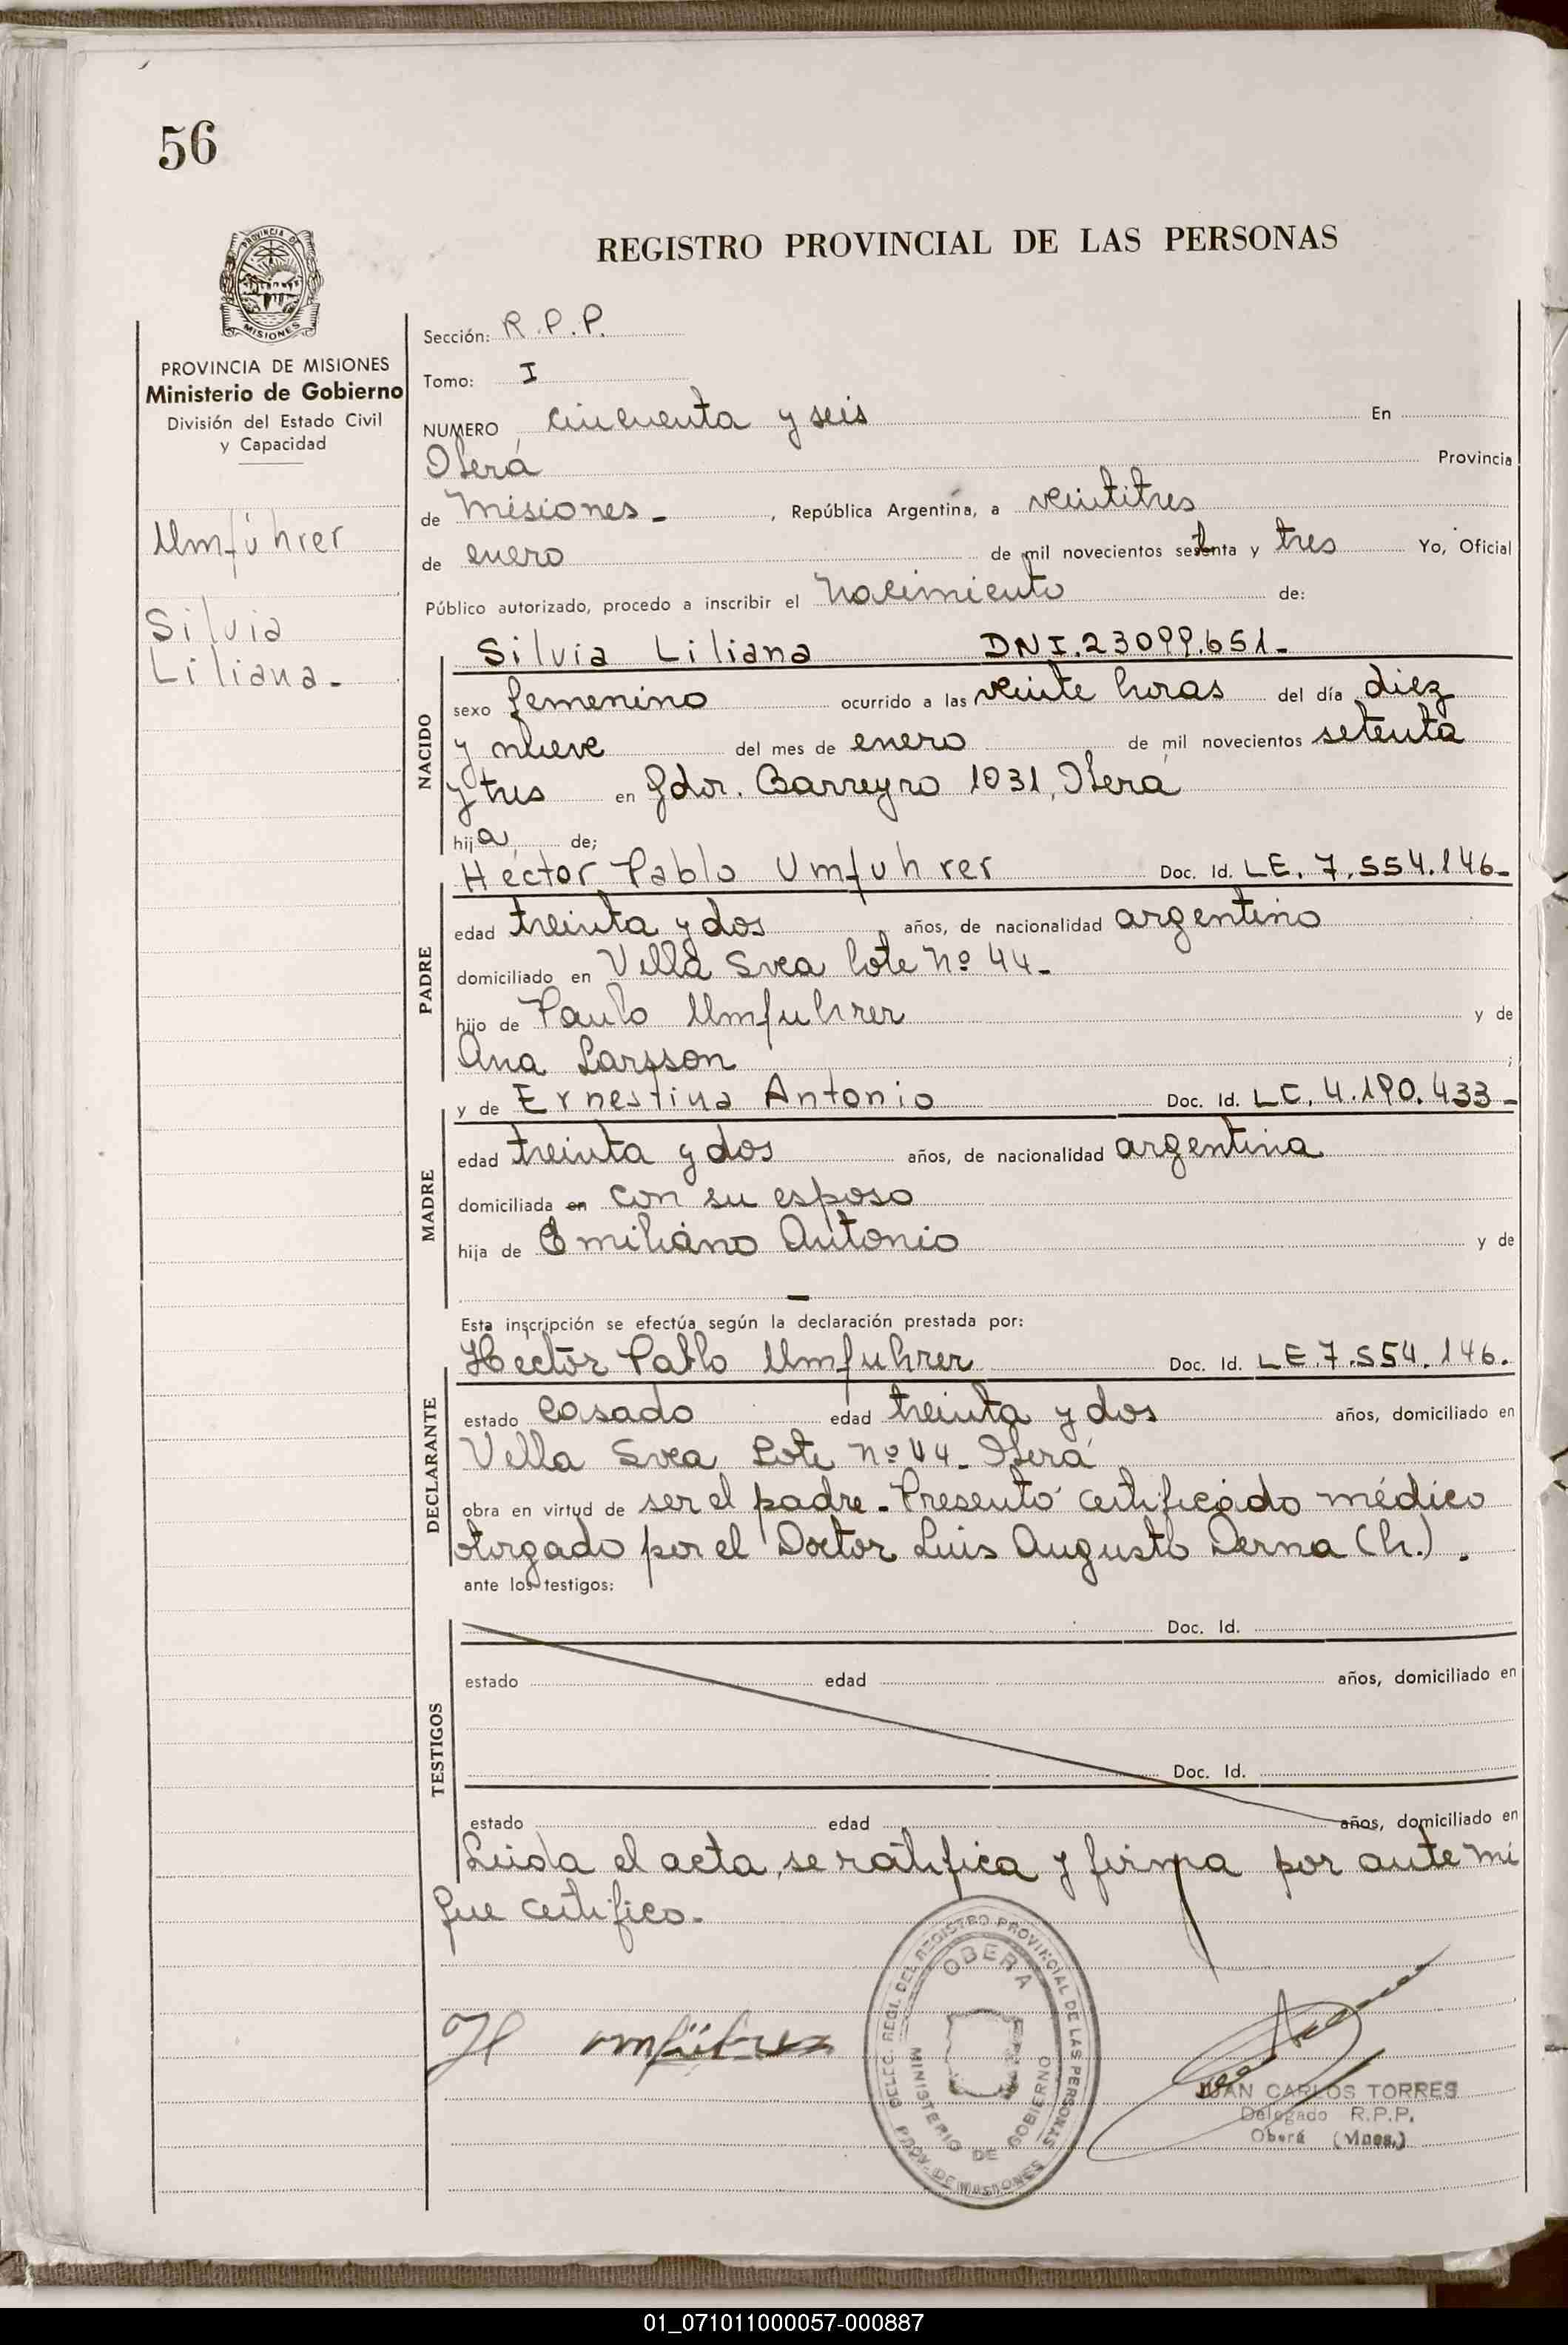 56
PROVINCIA DE
MISIONES
REGISTRO PROVINCIAL DE LAS PERSONAS
PROVINCIA DE MISIONES
Ministerio de Gobierno
División del Estado Civil
y Capacidad
Umfuhrer
Silvia
Liliana.-
Sección: R.P.P.
Tomo: I
NUMERO cincuenta y seis En
Oberá Provincia
de Misiones - , República Argentina, a veintitres
de enero de mil novecientos setenta y tres Yo, Oficial
Público autorizado, procedo a inscribir el nacimiento de:
Silvia Liliana DNI.23099.651.-
NACIDO
sexo femenino ocurrido a las veinte horas del día diez
y nueve del mes de enero de mil novecientos setenta
y tres en Gdor. Barreyro 1031, Oberá
hija de;
Héctor Pablo Umfuhrer Doc. Id. LE. 7.554.146-
PADRE
edad treinta y dos años, de nacionalidad argentino
domiciliado en Villa Svea lote Nº 44-
hijo de Paulo Umfuhrer y de
Ana Larsson ;
y de Ernestina Antonio Doc. Id. LC. 4.190.433-
MADRE
edad treinta y dos años, de nacionalidad argentina
domiciliada en con su esposo
hija de Emiliano Antonio y de
-
Esta inscripción se efectúa según la declaración prestada por:
Héctor Pablo Umfuhrer Doc. Id. LE 7.554.146.
DECLARANTE
estado casado edad treinta y dos años, domiciliado en
Villa Svea Lote nº 44- Oberá
obra en virtud de ser el padre - Presentó certificado médico
otorgado por el Doctor Luis Augusto Derna (h.).
ante los testigos:
TESTIGOS
Doc. Id.
estado edad años, domiciliado en
Doc. Id.
estado edad años, domiciliado en
Leída el acta, se ratifica y firma por ante mí
que certifico.-
H Umfuhrer
DELEG. REGL. DEL REGISTRO PROVINCIAL DE LAS PERSONAS
OBERA
MINISTERIO DE GOBIERNO
PROV. DE MISIONES
JUAN CARLOS TORRES
Delegado R.P.P.
Oberá (Mnes.)
01_071011000057-000887